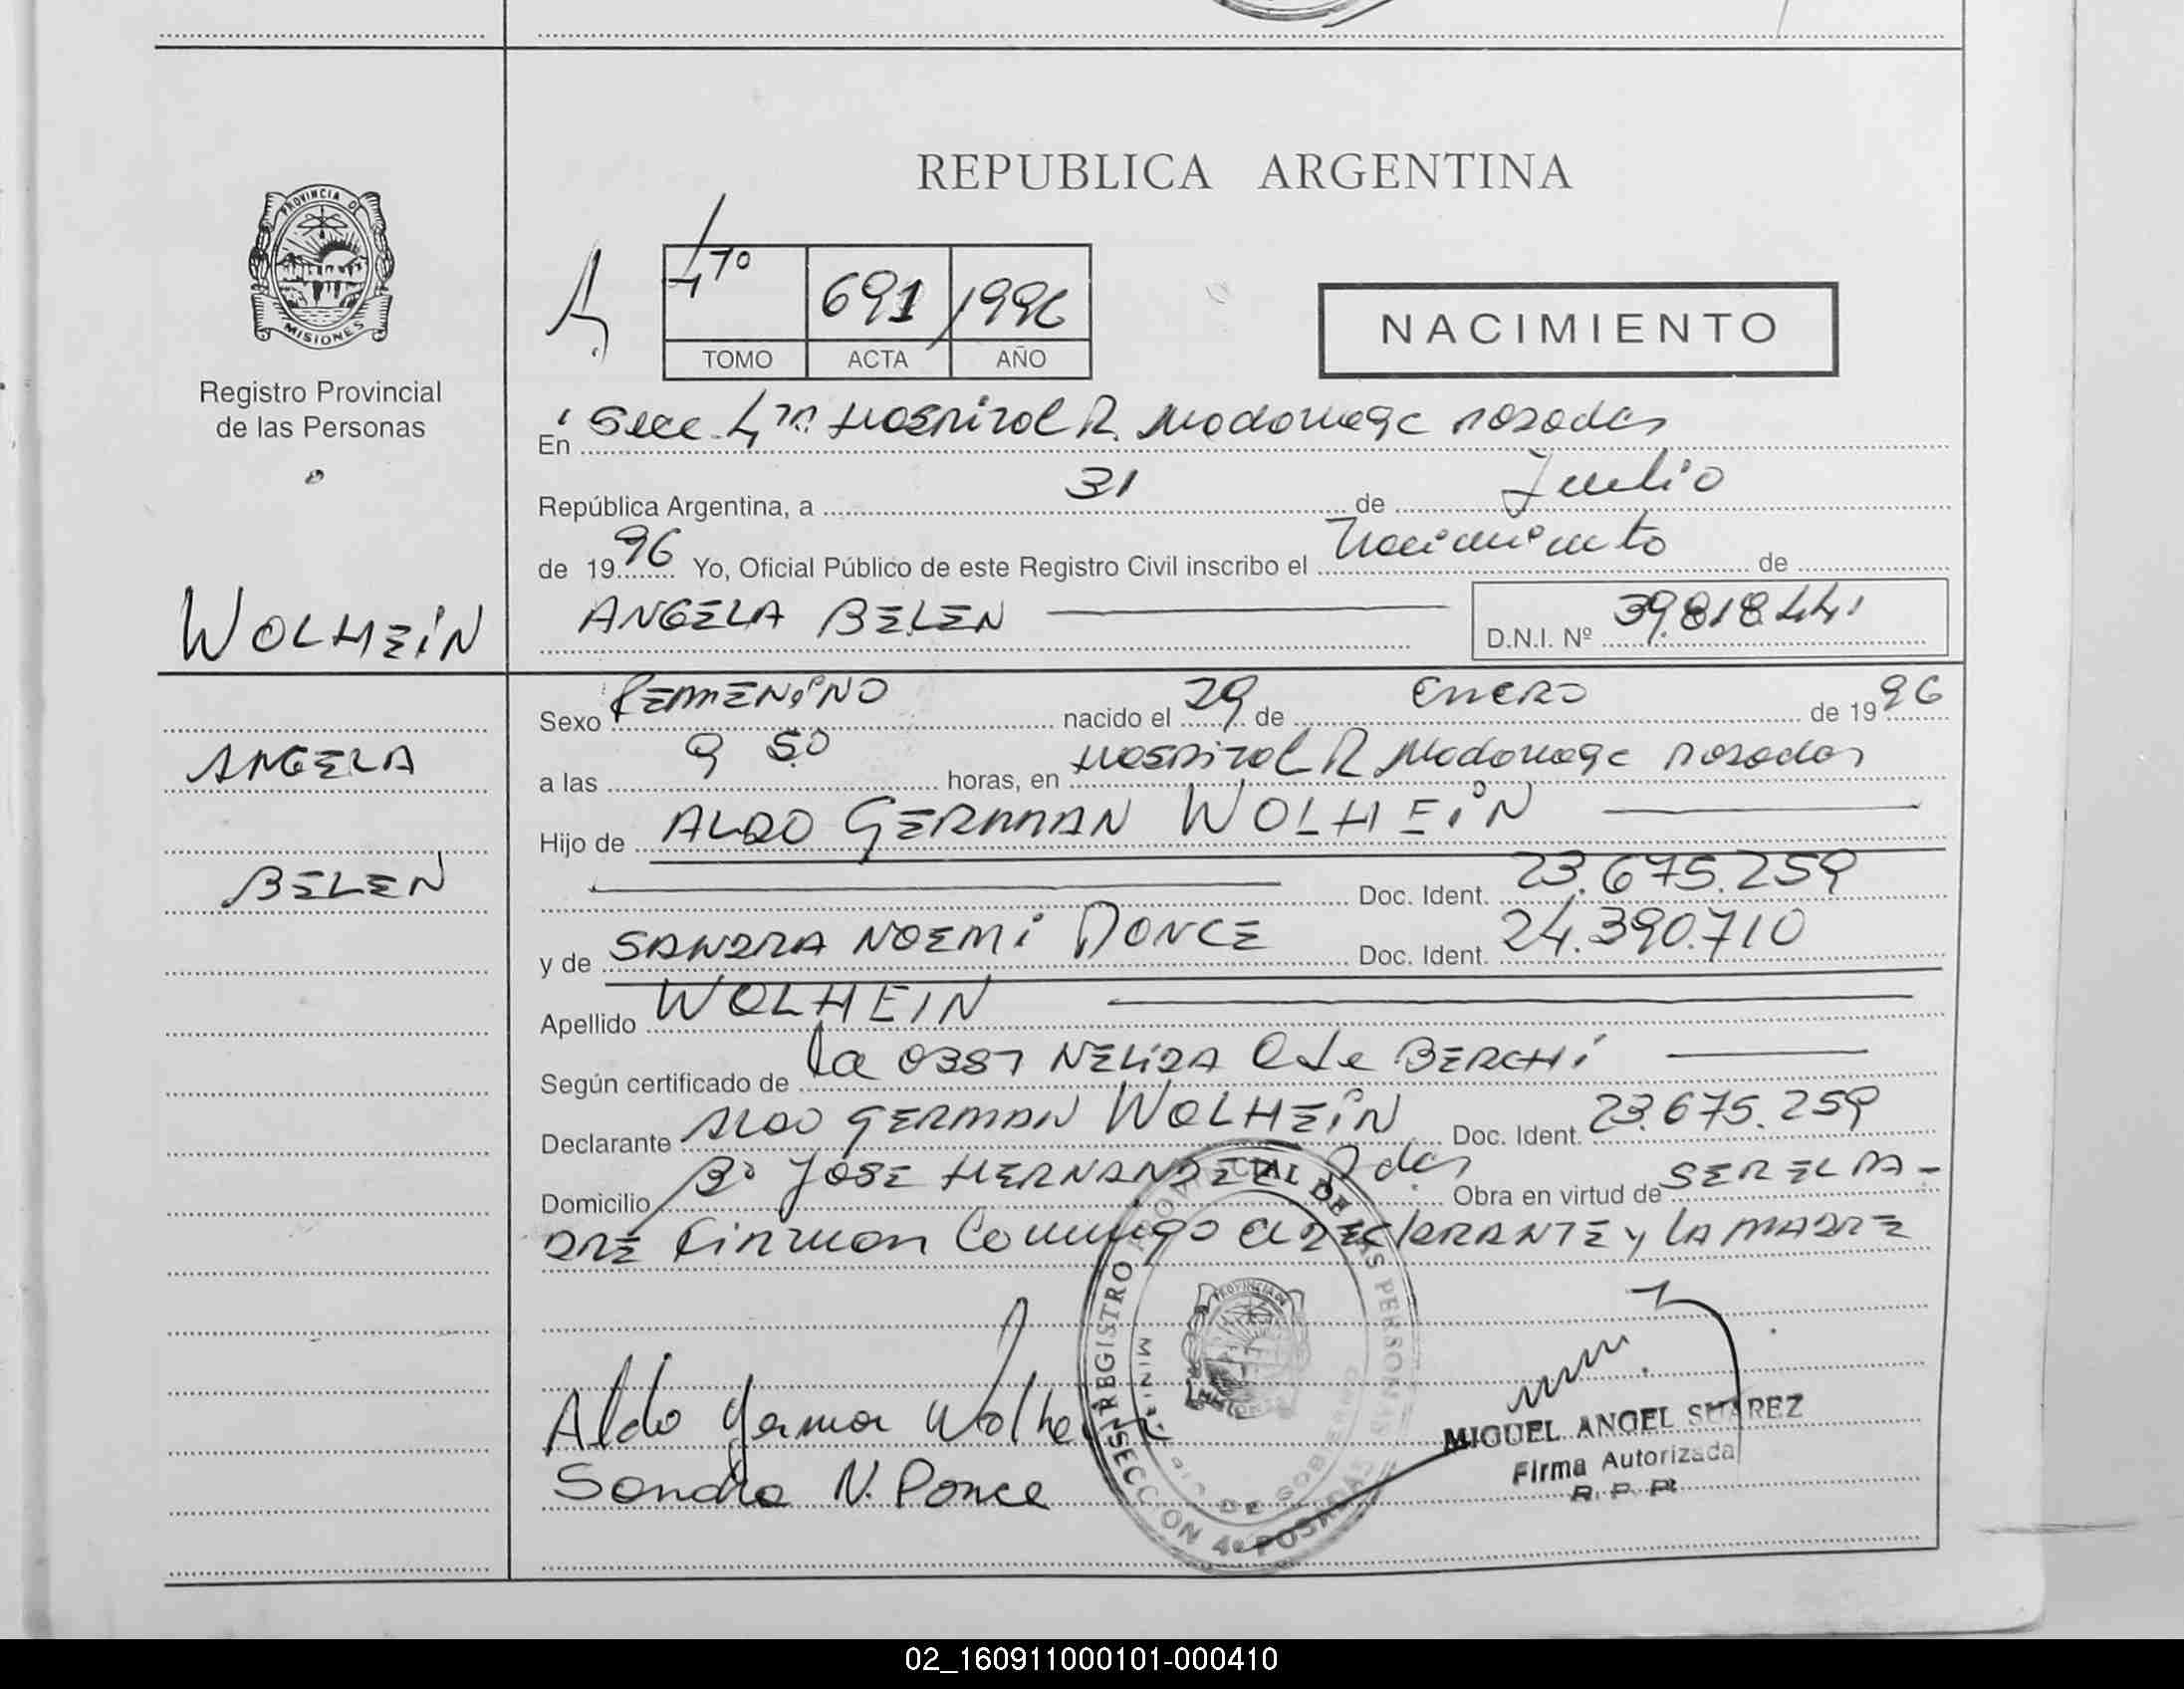 REPUBLICA ARGENTINA
PROVINCIA DE
MISIONES
Registro Provincial
de las Personas
691 1996
TOMO ACTA AÑO
NACIMIENTO
En Secc 4ta Hospital R. Madariaga Posadas
República Argentina, a 31 de Julio
de 1996 Yo, Oficial Público de este Registro Civil inscribo el Nacimiento de
WOLHEIN
ANGELA BELEN
D.N.I. Nº 39.818.441
Sexo FEMENINO nacido el 29 de Enero de 1996
ANGELA
a las 9 50 horas, en Hospital R Madariaga Posadas
Hijo de ALDO GERMAN WOLHEIN
BELEN
Doc. Ident. 23.675.259
y de SANDRA NOEMI PONCE Doc. Ident. 24.390.710
Apellido WOLHEIN
Según certificado de la OBST NELIDA de BERCHI
Declarante ALDO GERMAN WOLHEIN Doc. Ident. 23.675.259
Domicilio Bº JOSE HERNANDEZ Pdas Obra en virtud de SER EL PA-
DRE Firman Conmigo el DECLARANTE y LA MADRE
REGISTRO PROVINCIAL DE LAS PERSONAS
MINISTERIO DE GOBIERNO
SECCION 4º POSADAS
Aldo German Wolhein
Sandra N. Ponce
MIGUEL ANGEL SUAREZ
Firma Autorizada
R. P. P.
02_160911000101-000410